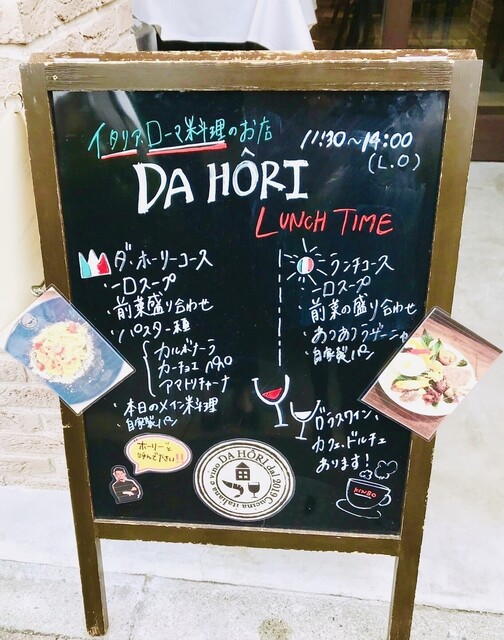 イタリア・ローマ料理のお店
11:30〜14:00
(L.O)
DA HÔRI
LUNCH TIME
ダ・ホーリーコース
・一口スープ
・前菜盛り合わせ
・パスタ一種
カルボナーラ
カーチョエペペ
アマトリチャーナ
・本日のメイン料理
・自家製パン
ランチコース
・一口スープ
・前菜の盛り合わせ
・あつあつラザーニャ
・自家製パン
グラスワイン、
カフェ、ドルチェ
あります!
ホーリーと
呼んで下さい!!
DA HÔRI dal 2019 Cucina italiana e vino